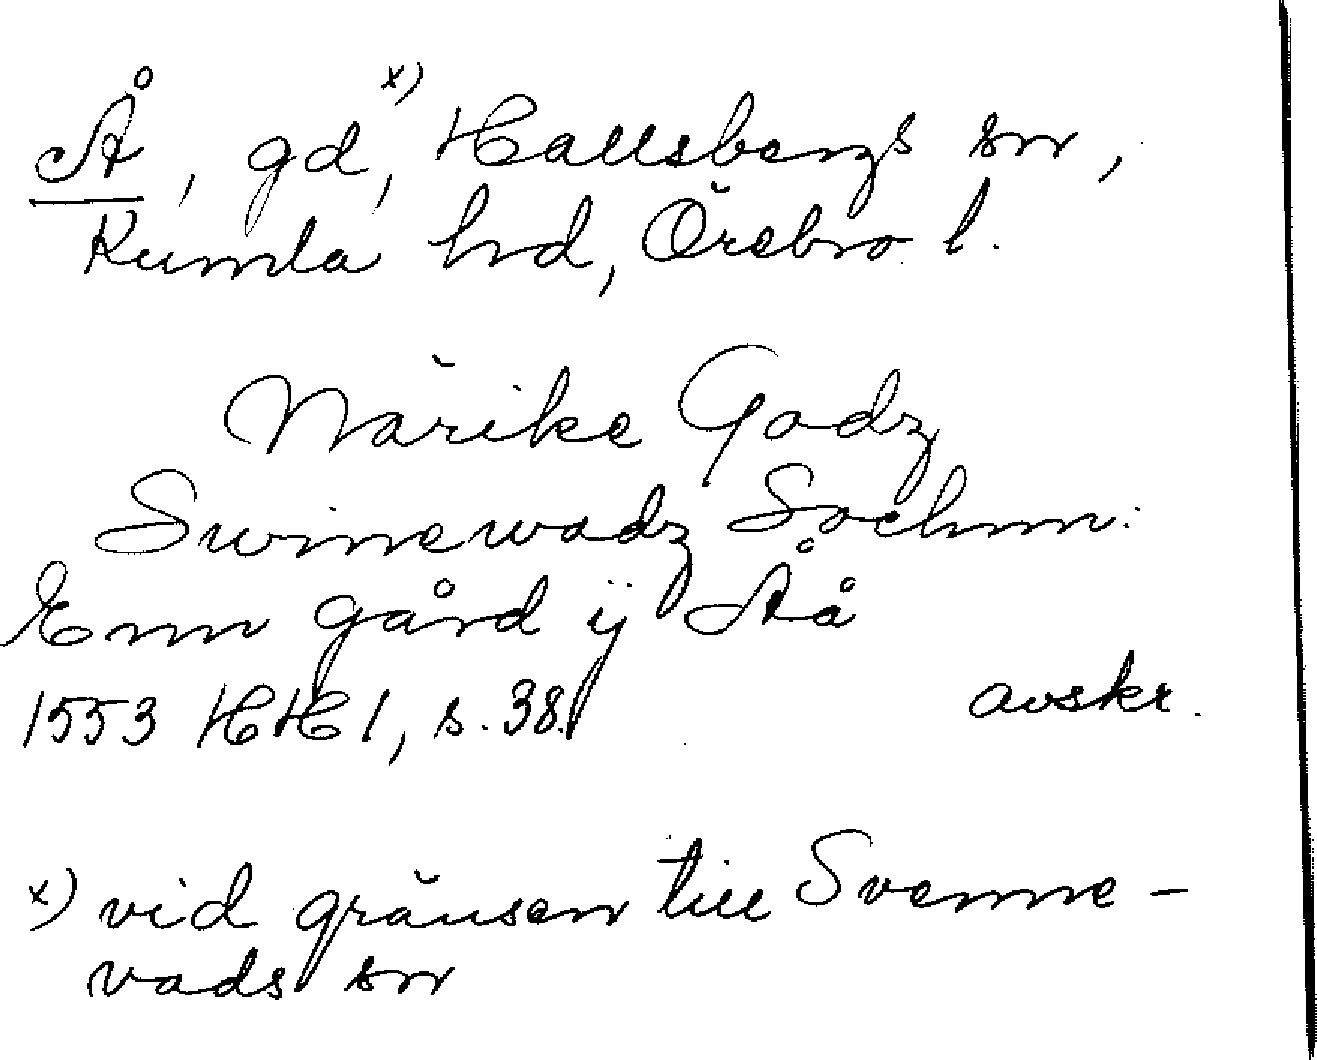 Å, gd,x) Hallsbergs sn,
Kumla hd, Örebro l.
Närike Godz
Swinewadz Sochnn:
Enn gård ij Åå
1553 HH 1, s. 38. avskr.
x) vid gränsen till Svenne-
vads sn